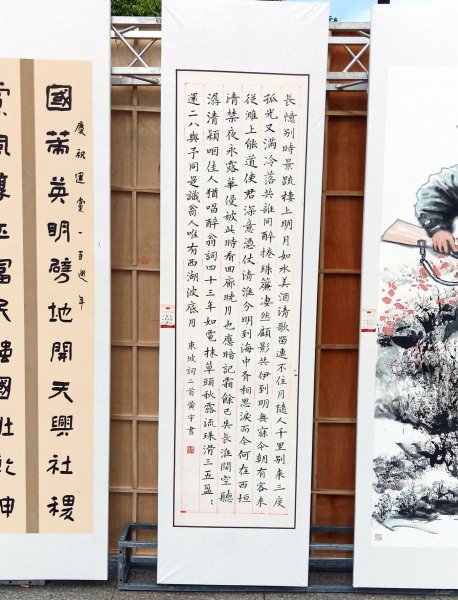 長憶别時景疏樓上明月如水美酒清歌留連不住月隨人千里别來三度
孤光又滿冷落共誰同醉捲珠簾淒然顧影共伊到明無寐今朝有客來
從濉上能道使君深意憑仗清淮分明到海中有相思淚而今何在西垣
清禁夜永露華侵被此時看回廊曉月也應暗記霜餘已失長淮闊空聽
潺清潁咽佳人猶唱醉翁詞四十三年如電抹草頭秋露流珠滑三五盈〻
還二八與予同是識翁人唯有西湖波底月 東坡詞二首黄宇書
慶祝建黨一百週年
國策英明劈地開天興社稷
黨風淳正富民強國壯乾坤